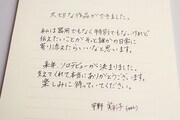 大切な作品ができました。
私は器用でもなく特別でもないけれど
伝えたいことが、そっと誰かの日常に
寄り添えたらいいなと思います。
来年、ソロデビューが決まりました。
支えてくれて本当にありがとうございます。
楽しみに待っていてください。